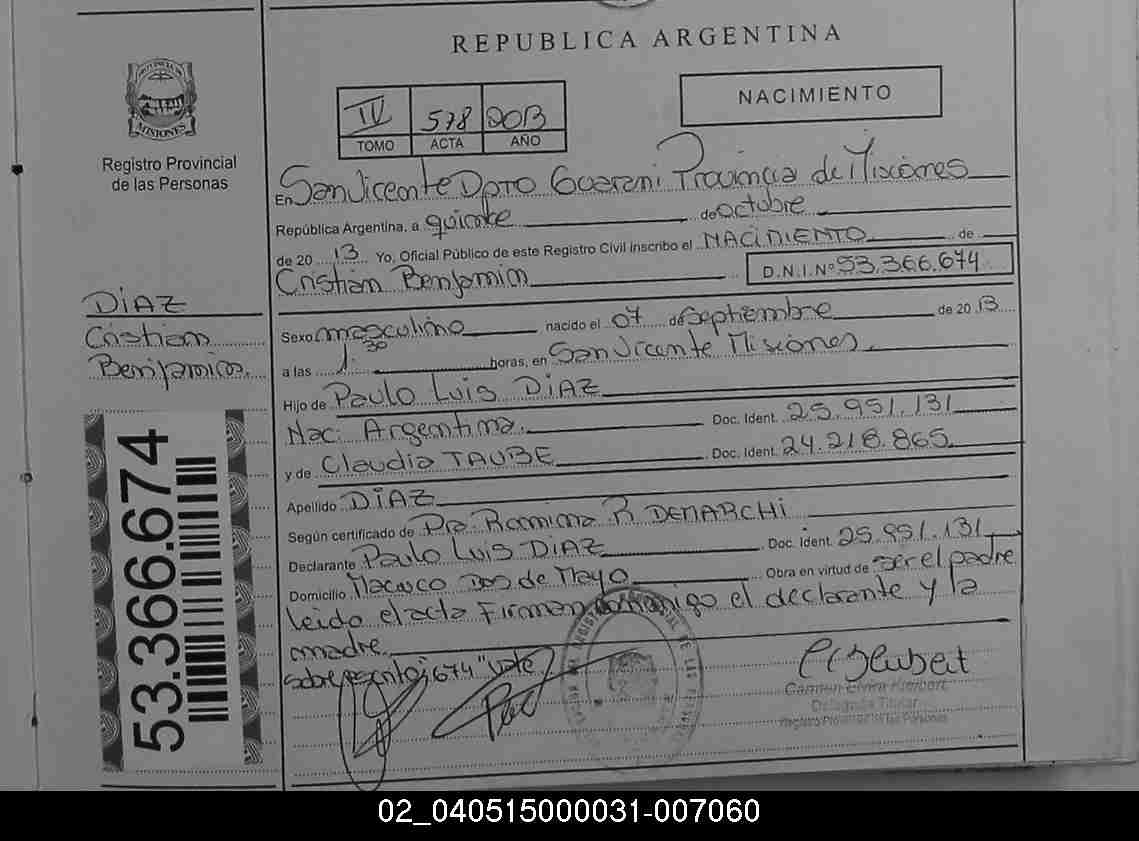 REPUBLICA ARGENTINA
PROVINCIA DE
MISIONES
Registro Provincial
de las Personas
IV 578 2013
TOMO ACTA AÑO
NACIMIENTO
En San Vicente Dpto Guarani Provincia de Misiones
República Argentina, a quince de octubre
de 20 13 Yo, Oficial Público de este Registro Civil inscribo el NACIMIENTO de
Cristian Benjamin D.N.I.Nº 53.366.674
DIAZ
Cristian
Benjamin.
Sexo masculino nacido el 07 de Septiembre de 20 13
a las 1:30 horas, en San Vicente Misiones.
Hijo de Paulo Luis DIAZ
Nac: Argentina. Doc. Ident. 25.951.131
y de Claudia TAUBE Doc. Ident. 24.218.865
Apellido DIAZ
Según certificado de Dra. Romina R DEMARCHI
Declarante Paulo Luis DIAZ Doc. Ident. 25.951.131
Domicilio Macuco Dos de Mayo Obra en virtud de ser el padre
leido el acta Firman conmigo el declarante y la
madre.
sobrescrito: "674" vale.
Carmen Elvira
Delegada Titular
Registro Provincial de las Personas
53.366.674
02_040515000031-007060